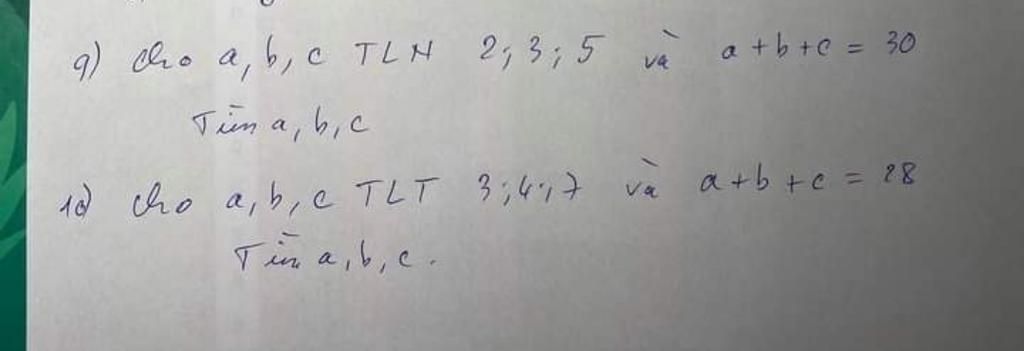 9) Cho a, b, c TLN 2; 3; 5 và a + b + c = 30
Tìm a, b, c
10) Cho a, b, c TLT 3; 4; 7 và a + b + c = 28
Tìm a, b, c.